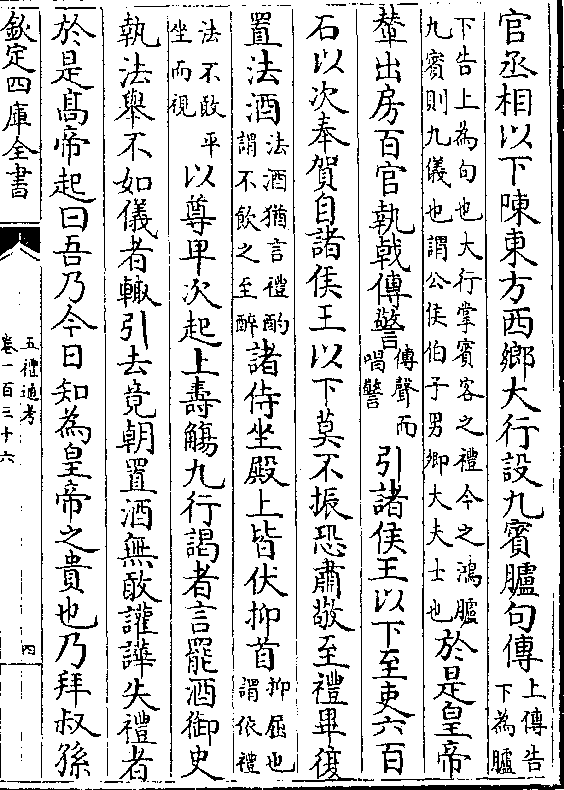 官丞相以下陳東方西鄉大行設九賓臚句傳上傳告下為臚
下告上為句也大行掌賓客之禮今之鴻臚九賓則九儀也謂公侯伯子男卿大夫士也於是皇帝
輦出房百官執戟傳警傳聲而唱警引諸侯王以下至吏六百
石以次奉賀自諸侯王以下莫不振恐肅敬至禮畢復
置法酒法酒猶言禮酌謂不飲之至醉諸侍坐殿上皆伏抑首抑屈也謂依禮
法不敢平坐而視以尊卑次起上壽觴九行謁者言罷酒御史
執法舉不如儀者輙引去竟朝置酒無敢讙譁失禮者
於是髙帝起曰吾乃今日知為皇帝之貴也乃拜叔孫
欽定四庫全書
五禮通考
卷一百三十六
四